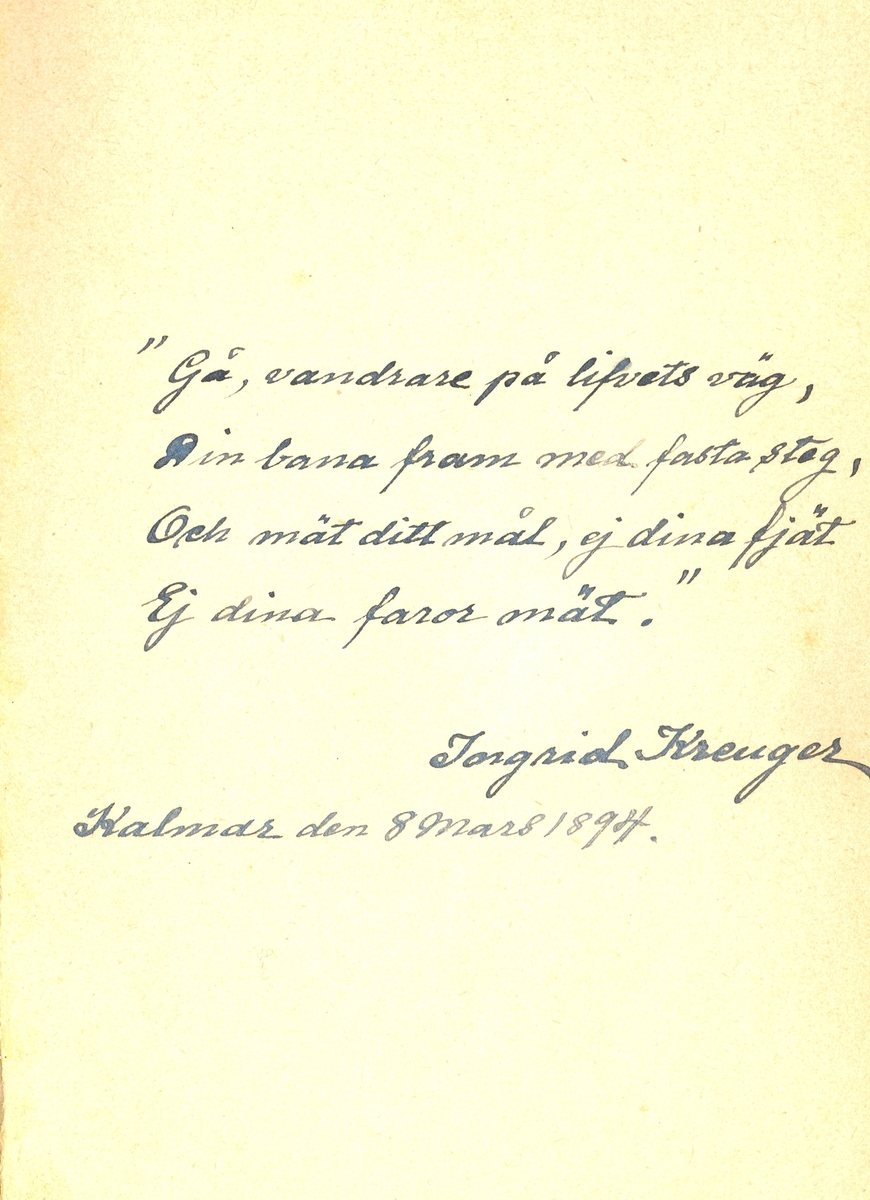 "Gå, vandrare på lifvets väg,
Din bana fram med fasta steg,
Och mät ditt mål, ej dina fjät
Ej dina faror mät."
Ingrid Kreuger
Kalmar den 8 Mars 1894.